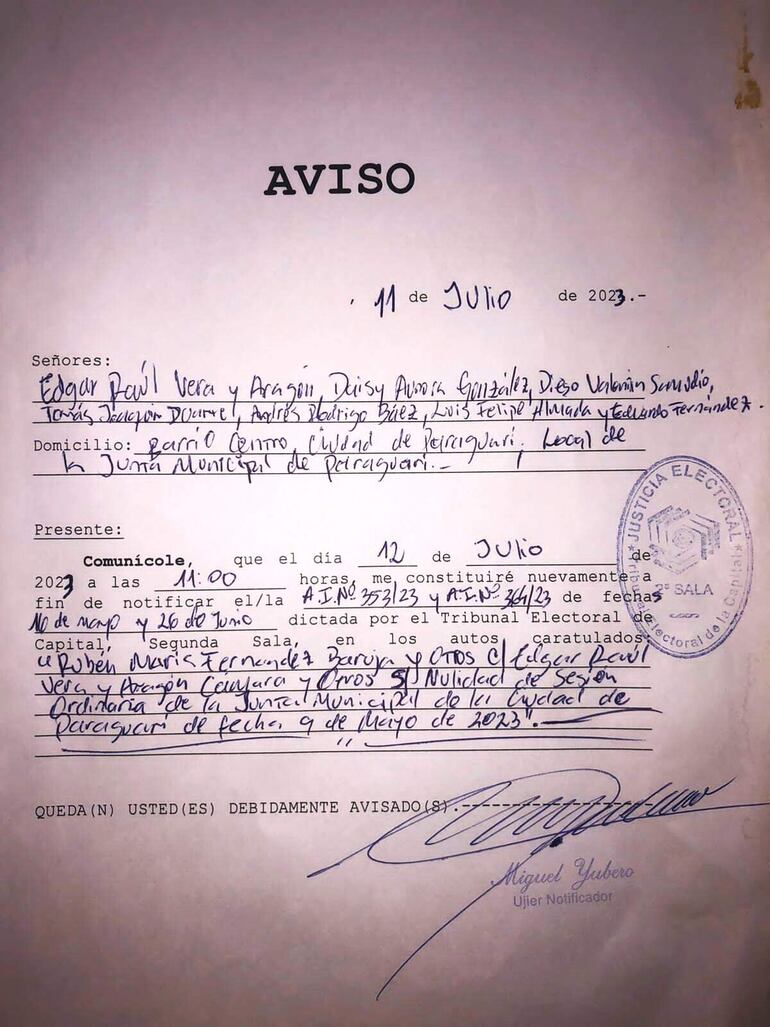 AVISO
11 de Julio de 2023.-
Señores:
Edgar Raúl Vera y Aragón, Daisy Aurora González, Diego Valentín Samudio,
Tomás Joaquín Duarte, Andrés Rodrigo Báez, Luis Felipe Almada y Eduardo Fernández.
Domicilio: Barrio Centro, Ciudad de Paraguarí, Local de
la Junta Municipal de Paraguarí.-
Presente:
Comunícole, que el día 12 de Julio de
2023 a las 11:00 horas, me constituiré nuevamente a
fin de notificar el/la A.I. Nº 353/23 y A.I. Nº 364/23 de fechas
16 de mayo y 26 de Junio dictada por el Tribunal Electoral de
Capital, Segunda Sala, en los autos caratulados:
"Rubén María Fernandez Baruja y Otros C/ Edgar Raúl
Vera y Aragón y Otros S/ Nulidad de Sesión
Ordinaria de la Junta Municipal de la Ciudad de
Paraguarí de fecha 9 de Mayo de 2023".
QUEDA(N) USTED(ES) DEBIDAMENTE AVISADO(S).-
JUSTICIA ELECTORAL
2ª SALA
Tribunal Electoral de la Capital
Miguel Yubero
Ujier Notificador